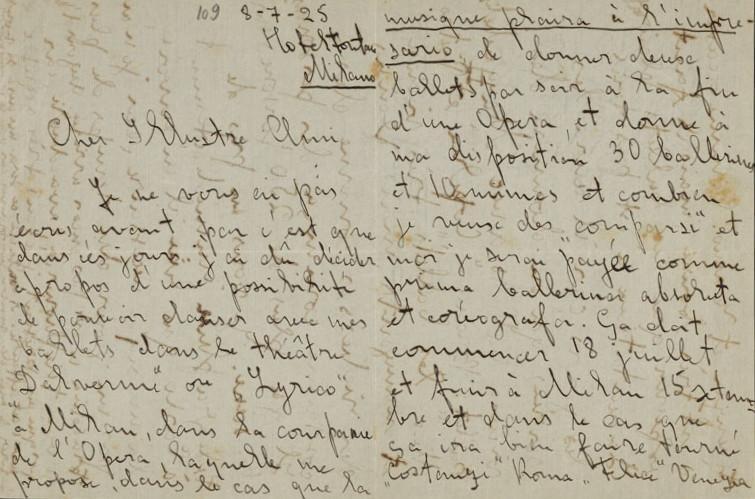 109 8-7-25
Hotel
Milano
Cher Illustre Ami
Je ne vous en pas
écris avant par c'est que
dans ces jours j'ai dû décider
apropos d'une possibilité
de pouvoir danser avec mes
ballets dans le théâtre
"Dalverme" ou "Lyrico"
à Milan, dans la compagnie
de l'Opera, laquelle me
propose, dans le cas que la
musique plaira à l'impre-
sario de donner deux
ballets par soir à la fin
d'une Opera, et donne à
ma disposition 30 ballerine
et 10 mimes et combien
je veux des "comparsi" et
moi je serai payée comme
prima ballerina absoluta
et coreografa. Ça doit
commencer 18 juillet
et finir à Milan 15 setem-
bre et dans le cas que
ça ira bien faire tourné
"Costanzi" Roma "Fenice" Venezia